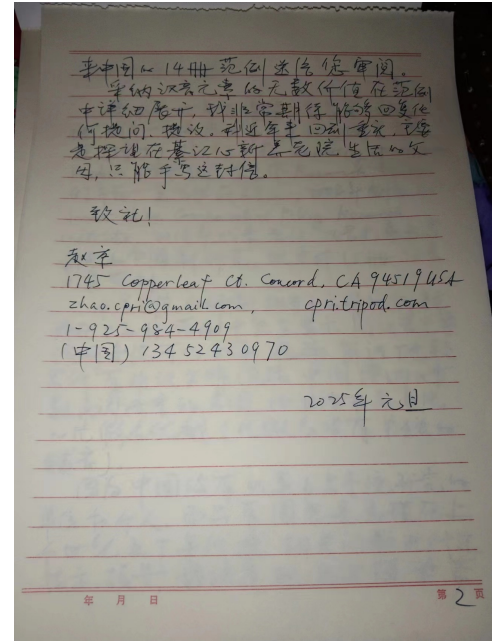 来中国的14册范例送给您审阅。
采纳汉亮元素的无数价值在范例
中详细展开，我非常期待能够回复任
何提问、提议。我近年来回到重庆，主要
是探望在綦江心新养老院生活的父
母，只能手写这封信。
致礼！
赵京
1745 Copperleaf Ct. Concord, CA 94519 USA
zhao.cpri@gmail.com, cpri.tripod.com
1-925-984-4909
（中国）13452430970
2025年元旦
年 月 日
第 2 页